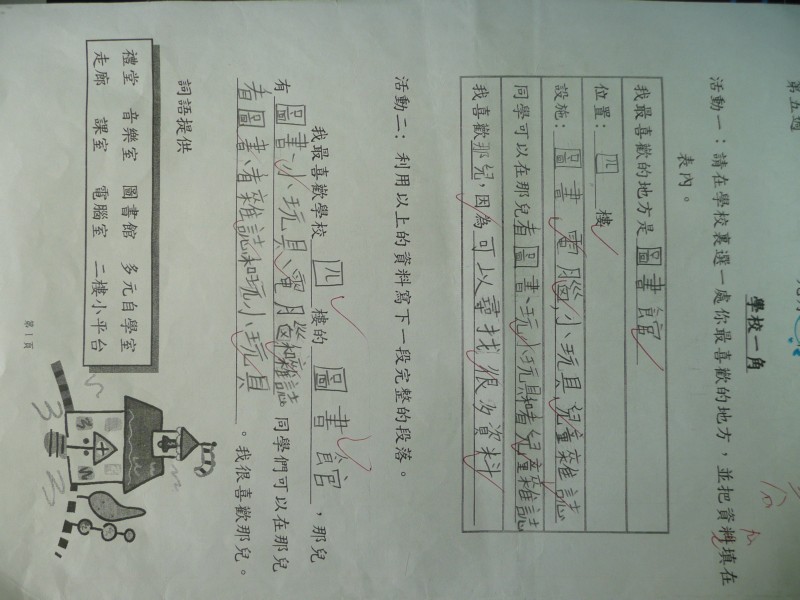 第五週
學校一角
活動一：請在學校裏選一處你最喜歡的地方，並把資料填在
表內。
我最喜歡的地方是圖書館
位置：四樓
設施：圖書、電腦,小玩具兒童雜誌
同學可以在那兒看圖書、玩小玩具和看兒童雜誌
我喜歡那兒，因為可以尋找很多資料
活動二：利用以上的資料寫下一段完整的段落。
我最喜歡學校四樓的圖書館，那兒
有圖書、小玩具、電腦和雜誌同學們可以在那兒
看圖書、看雜誌和玩小玩具。我很喜歡那兒。
詞語提供
禮堂 音樂室 圖書館 多元自學室
走廊 課室 電腦室 二樓小平台
第1頁